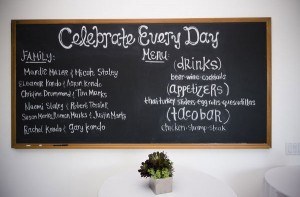 Celebrate Every Day
FAMILY:
Mandie Miller & Micah Staley
Eleanor Kondo & Aaron Kondo
Christine Drummond & Tim Marks
Naomi Staley & Robert
Marks & Justin Marks
Rachel Kondo & Gary Kondo
MENU:
(drinks)
beer-wine-cocktails
(appetizers)
thai turkey sliders egg rolls quesadillas
(tacobar)
chicken-shrimp-steak